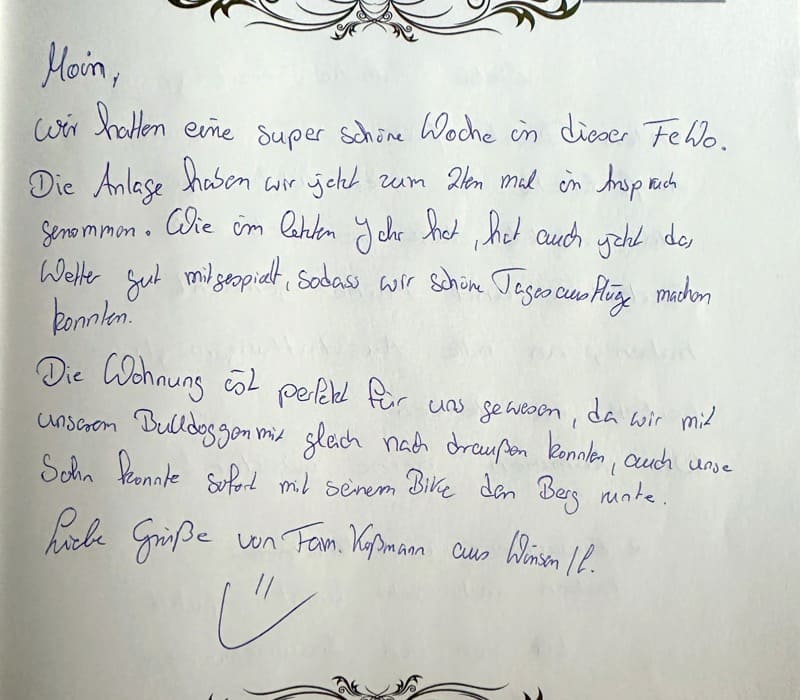 Moin,
wir hatten eine super schöne Woche in dieser FeWo.
Die Anlage haben wir jetzt zum 2ten mal in Anspruch
genommen. Wie im letzten Jahr hat, hat auch jetzt das
Wetter gut mitgespielt, sodass wir schöne Tagesausflüge machen
konnten.
Die Wohnung ist perfekt für uns gewesen, da wir mit
unserem Bulldoggenmix gleich nach draußen konnten, auch unse
Sohn konnte sofort mit seinem Bike den Berg runte.
Liebe Grüße von Fam. Koßmann aus Winsen/L.